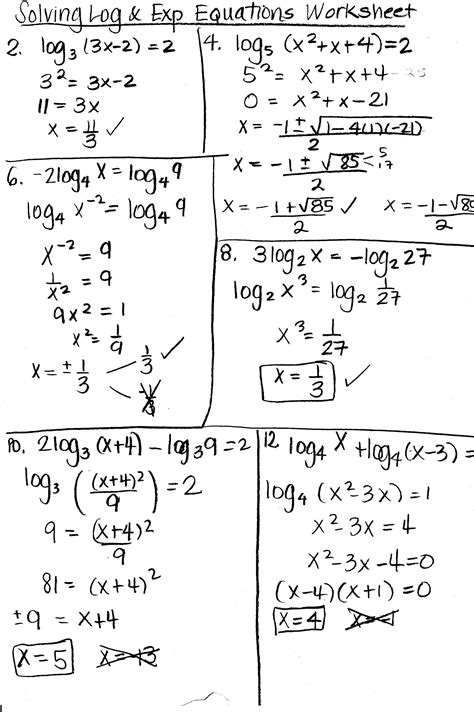 Solving Log & Exp Equations Worksheet
2. log₃(3x-2) = 2
3² = 3x-2
11 = 3x
x = 11/3 ✓
4. log₅(x²+x+4)=2
5² = x²+x+4 -25
0 = x²+x-21
x = -1±√1-4(1)(-21)/2
x = -1±√85/2 <5 17
x = -1+√85/2 ✓ x = -1-√85/2
6. -2log₄x = log₄9
log₄x⁻² = log₄9
x⁻² = 9
1/x² = 9
9x² = 1
x² = 1/9
x = ±1/3 1/3 ✓
-1/3
8. 3log₂x = -log₂27
log₂x³ = log₂ 1/27
x³ = 1/27
x = 1/3 ✓
10. 2log₃(x+4) - log₃9 = 2
log₃((x+4)²/9) = 2
9 = (x+4)²/9
81 = (x+4)²
±9 = x+4
x=5 x=-13
12 log₄x + log₄(x-3) =
log₄(x²-3x) = 1
x²-3x = 4
x²-3x-4=0
(x-4)(x+1) = 0
x=4 x=-1